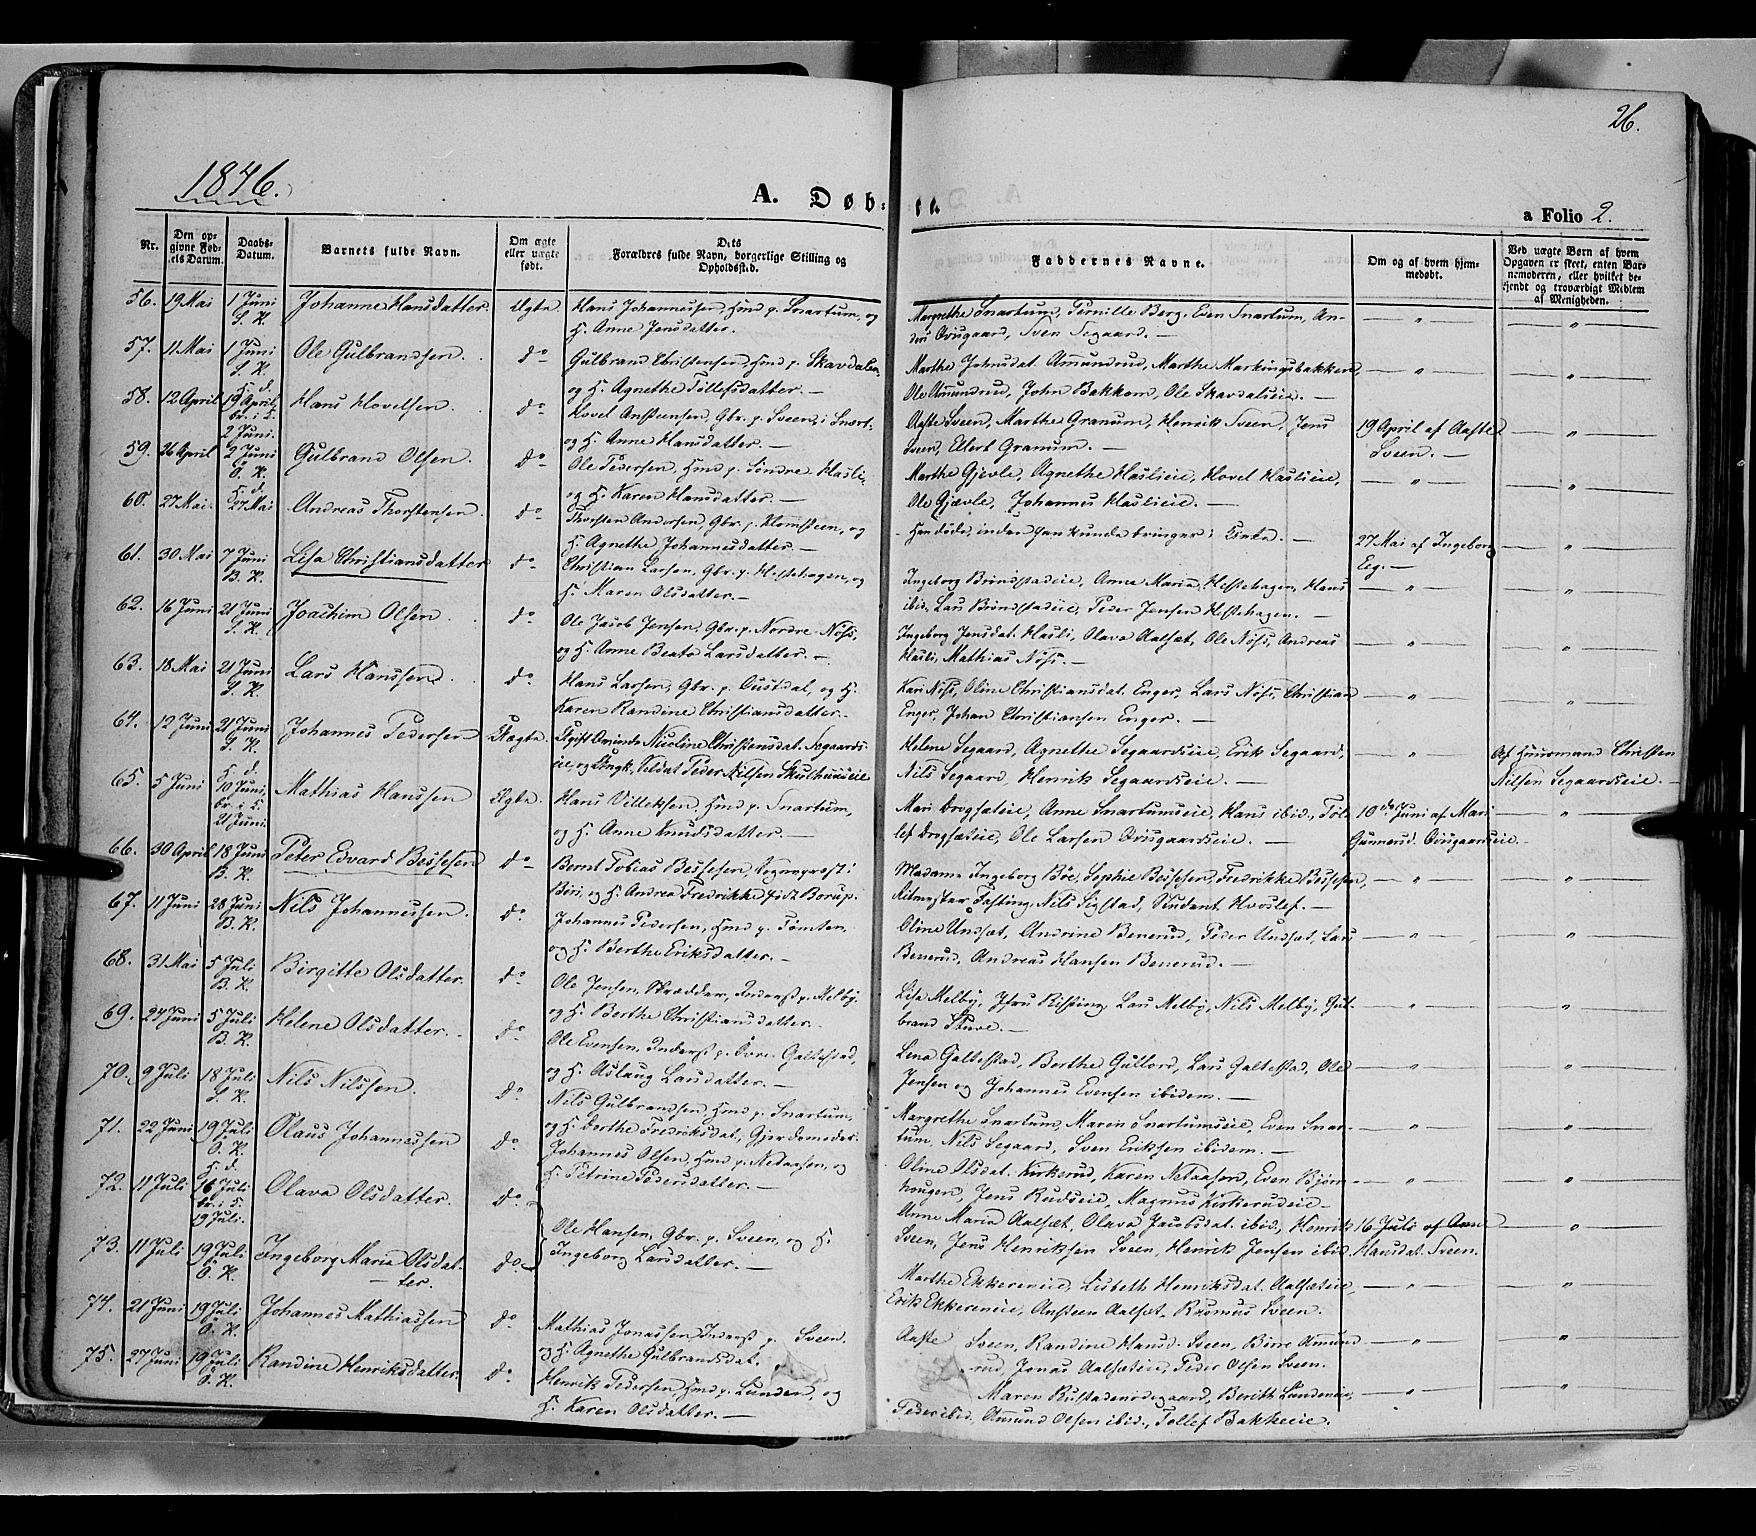 26.
1846.
A. Døb-
te.
a Folio 2.
Nr.
Den op-
givne Fød-
sels Datum.
Daabs-
Datum.
Barnets fulde Navn.
Om ægte
eller uægte
født.
Dets
Forældres fulde Navn, borgerlige Stilling og
Opholdssted.
Faddernes Navne.
Om og af hvem hjem-
medøbt.
Ved uægte Børn af hvem
Opgaven er skeet, enten Bar-
nemoderen, eller hvilket be-
kjendt og troværdigt Medlem
af Menigheden.
56. 19 Mai 1 Juni S. K. Johanne Hansdatter. Ægte.
Hans Johannessen, Hmd p. Snartum, og
H. Anne Jensdatter.
Margrethe Snartum, Pernille Berg, Even Snartum, An-
ders Ovsgaard, Sven Segaard. —
57. 11 Mai 1 Juni S. K. Ole Gulbrandsen. do
Gulbrand Christensen, Hmd p. Skavdalen,
og H. Agnethe Tollefsdatter. —
Marthe Johnsdat. Amundrud, Marthe Markingsbakken,
Ole Amundrud, John Bakkom, Ole Skavdalseie. —
58. 12 April H. d. 19 April, br. i K. 2 Juni. Hans Hovelsen. do
Hovel Anstensen, Gbr. p. Sveen, i Snert.
og H. Anne Hansdatter. —
Aaste Sveen, Marthe Granum, Henrik Sveen, Jens
Sveen, Ellert Granum. —
19 April af Aaste
Sveen. —
59. 26 April 2 Juni Ö. K. Gulbrand Olsen. do
Ole Pedersen, Hmd p. Söndre Hasli,
og H. Karen Hansdatter. —
Marthe Gjevle, Agnethe Haslieie, Hovel Haslieie,
Ole Gjævle, Johannes Haslieie. —
60. 27 Mai. H. d. 27 Mai Andreas Thorstensen. do
Thorsten Andersen, Gbr. p. Klomsteen, og
H. Agnethe Johannesdatter. —
Han døde, inden han kunde bringes i Kirke. —
27 Mai af Ingeborg
Eeg. —
61. 30 Mai 7 Juni B. K. Lisa Christiansdatter do
Christian Larsen, Gbr. p. Hestehagen, og
H. Maren Olsdatter. —
Ingeborg Bröndstadeie, Anne Maria, Hestehagen, Hans
ibid., Lars Bröndstadeie, Peder Jensen Hestehagen. —
62. 16 Juni 21 Juni S. K. Joachim Olsen. do
Ole Jacob Jensen, Gbr. p. Nordre Nöss,
og H. Anne Beate Larsdatter. —
Ingeborg Jensdat. Hasli, Olava Aalsæt, Ole Nöss, Andreas
Hasli, Mathias Nöss. —
63. 18 Mai 21 Juni S. K. Lars Hanssen. do
Hans Larsen, Gbr. p. Oustdal, og H.
Karen Randine Christiansdatter. —
Kari Nöss, Oline Christiansdat. Enger, Lars Nöss, Christian
Enger, Johan Christiansen Enger. —
64. 12 Juni 21 Juni S. K. Johannes Pedersen Uægte.
Ugift Qvinde Nicoline Christensdat. Segaards-
eie, og Ungk. Soldat Peder Nilsen Skulhuuseie
Helene Segaard, Agnethe Segaardseie, Erik Segaard,
Nils Segaard, Henrik Segaardseie. —
Af Huusmand Christen
Nilsen Segaardseie. —
65. 5 Juni H. d. 10 Juni, br. i K. 21 Juni. Mathias Hanssen Ægte.
Hans Villeksen, Hmd p. Snartum,
og H. Anne Knudsdatter. —
Mari Drogsæteie, Anne Snartumseie, Hans ibid., Tol-
lef Drogsæteie, Ole Larsen Ovsgaardseie. —
10de Juni af Mari
Gunnersd. Ovsgaardseie.
66. 30 April 18 Juni B. K. Peter Edvard Bessesen do
Bernt Tobias Bessesen, Sogneprest i
Biri, og H. Andrea Fredrikke født Borup.
Madame Ingeborg Böe, Sophie Bessesen, Fredrikke Bessesen,
Ritmester Fasting, Nils Sigstad, Student Hvoslef. —
67. 11 Juni 28 Juni B. K. Nils Johannessen. do
Johannes Pedersen, Hmd p. Tömten,
og H. Berthe Eriksdatter. —
Oline Undset, Andrine Benerud, Peder Undset, Lars
Benerud, Andreas Hansen Benerud. —
68. 31 Mai 5 Juli B. K. Birgitte Olsdatter. do
Ole Jensen, Skrædder, Inderst p. Melby,
og H. Berthe Christiansdatter. —
Lisa Melby, Lars Melby, Nils Melby, Gul-
brand Stuve. —
69. 24 Juni 5 Juli B. K. Helene Olsdatter. do
Ole Evensen, Inderst p. Övre Galtestad,
og H. Aslaug Larsdatter. —
Lena Galtestad, Berthe Gullord, Lars Galtestad, Ole
Jensen og Johannes Evensen ibidem. —
70. 9 Juli 18 Juli S. K. Nils Nilssen. do
Nils Gulbrandsen, Hmd p. Snartum,
og H. Berthe Fredriksdat., Gjerdemoder.
Margrethe Snartum, Maren Snartumseie, Even Snar-
tum, Nils Segaard, Sven Eriksen ibidem. —
71. 22 Juni 19 Juli Ö. K. Olaus Johannessen do
Johannes Olsen, Hmd p. Netaasen, og
H. Petrine Pedersdatter. —
Oline Olsdat. Kirkerud, Karen Netaasen, Even Bjørn-
hougen, Jens Rudseie, Magnus Kirkerudeie. —
72. 11 Juli H. d. 16 Juli br. i K. 19 Juli. Olava Olsdatter. do
Ole Hansen, Gbr. p. Sveen, og H.
Ingeborg Larsdatter. —
Anne Maria Aalsæt, Olava Jacobsdat. ibid., Henrik
Sveen, Jens Henriksen Sveen, Henrik Jensen ibid.
16 Juli af Anne
Hansdat. Sveen.
73. 11 Juli 19 Juli Ö. K. Ingeborg Maria Olsdat-
ter. do
Marthe Ekkereneie, Lisbeth Henriksdat. Aalsæteie,
Erik Ekkereneie, Ansteen Aalsæt, Rasmus Sveen.
74. 21 Juni 19 Juli Ö. K. Johannes Mathiassen do
Mathias Jonassen, Inderst p. Sveen,
og H. Agnethe Gulbrandsdat.
Aaste Sveen, Randine Hansd. Sveen, Birre Amund-
rud, Jonas Aalsæteie, Peder Olsen Sveen.
75. 27 Juni 19 Juli Ö. K. Randine Henriksdatter. do
Henrik Pedersen, Hmd p. Lunden, og
H. Karen Olsdatter. —
Maren Rustadenödegaard, Berith Lundeneie,
Peder ibid., Amund Olsen ibid., Tollef Bakkeeie.